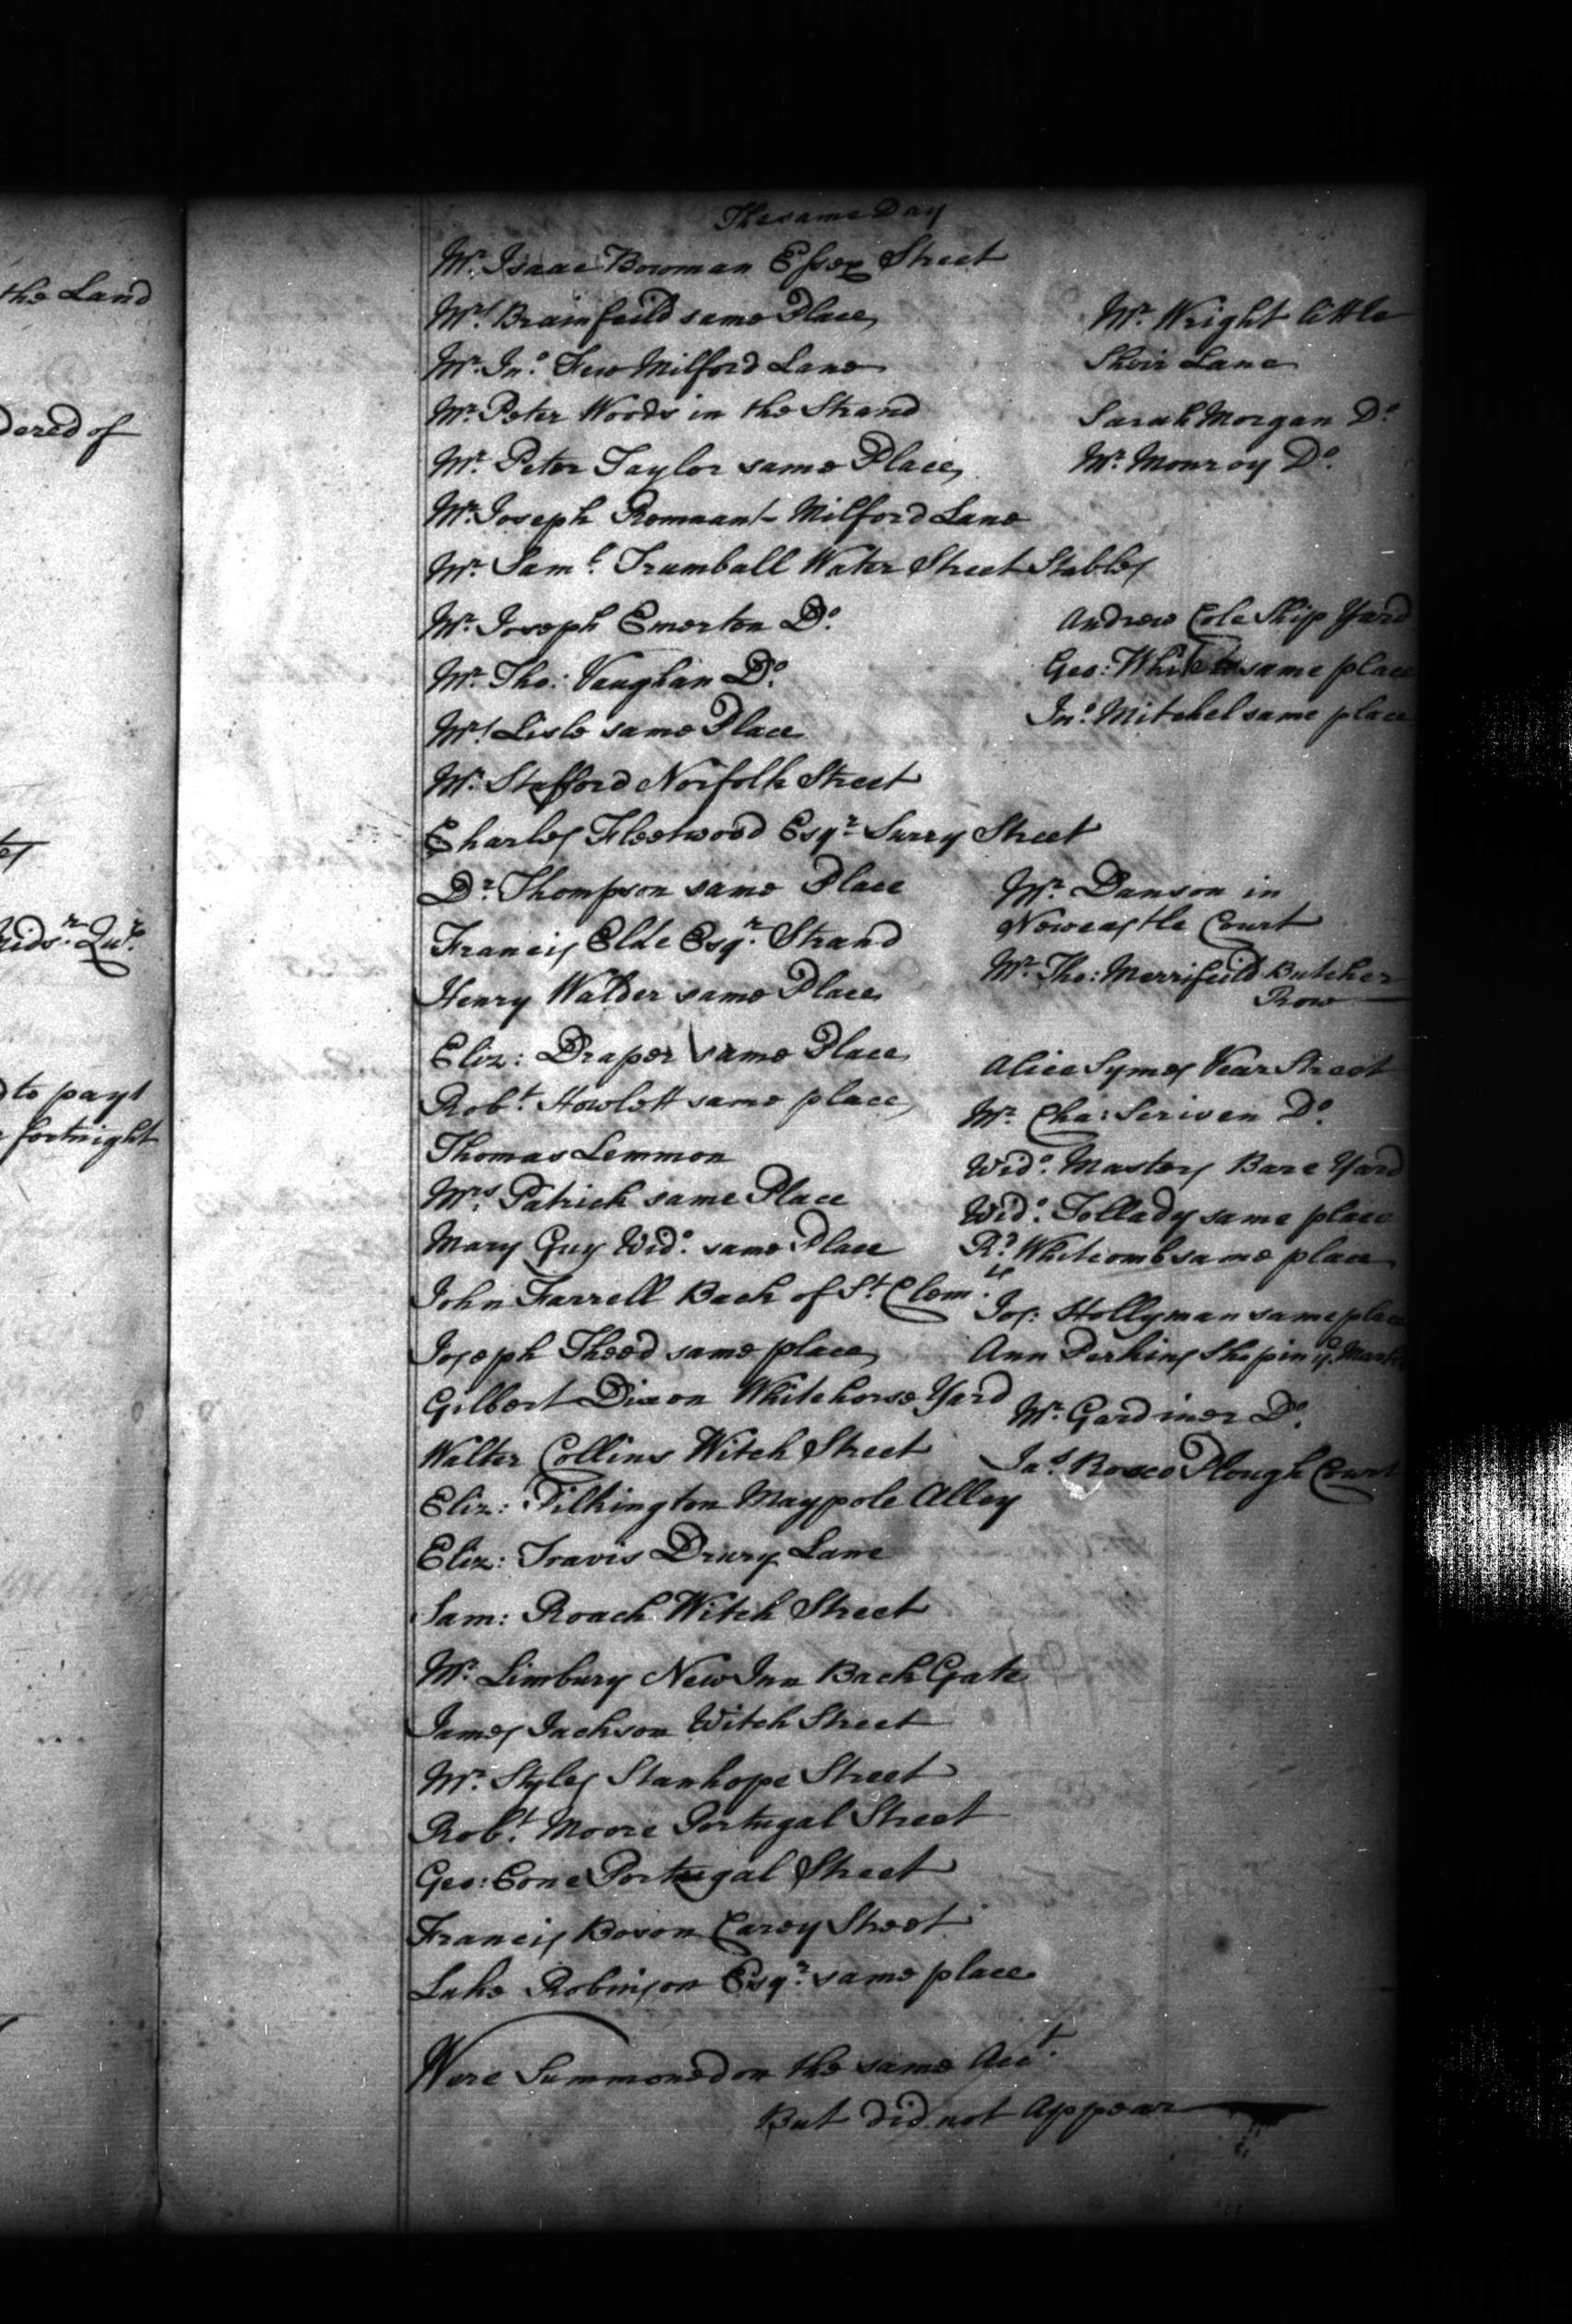 the Land
dered of
Mids:r Qur:
to pay
fortnight
The same Day
Mr. Isaac Bowman Essex Street
Mrs. Brainfeild same Place
Mr. Jno. Few Milford Lane
Mr. Peter Woods in the Strand
Mr. Peter Taylor same Place
Mr. Joseph Remnant Milford Lane
Mr. Saml. Trumball Water Street Stables
Mr. Joseph Emerton Do.
Mr. Tho: Vaughan Do.
Mrs. Lisle same Place
Mr. Stafford Norfolk Street
Charles Fleetwood Esqr. Surry Street
Dr. Thompson same Place
Francis Elde Esqr. Strand
Henry Walder same Place
Eliz: Draper same Place
Robt. Howlett same place
Thomas Lemmon
Mrs. Patrick same Place
Mary Guy Wido. same Place
John Farrell Back of St. Clemts.
Joseph Theed same place
Gilbert Dixon Whitehorse Yard
Walter Collins Witch Street
Eliz: Pilkington Maypole Alley
Eliz: Travis Drury Lane
Sam: Roach Witch Street
Mr. Limbury New Inn Back Gate
James Jackson Witch Street
Mr. Styles Stanhope Street
Robt. Moore Portugal Street
Geo: Cone Portugal Street
Francis Boson Carey Street
Luke Robinson Esqr. same place
Were Summoned on the same Acct.
But did not Appear
Mr. Wright little
Sheir Lane
Sarah Morgan Do.
Mr. Monroy Do.
Andrew Cole Ship Yard
Geo: same place
Jno. Mitchel same place
Mr. Danson in
Newcastle Court
Mr. Tho: Merrifeild Butcher
Row
Alice Symes Vear Street
Mr. Cha: Scriven Do.
Wido. Masters Bare Yard
Wido. Tollady same place
Rd. Whitcomb same place
Jos: Hollyman same place
Ann Perkins Shop in ye. Market
Mr. Gardiner Do.
Jas. Rosco Plough Court